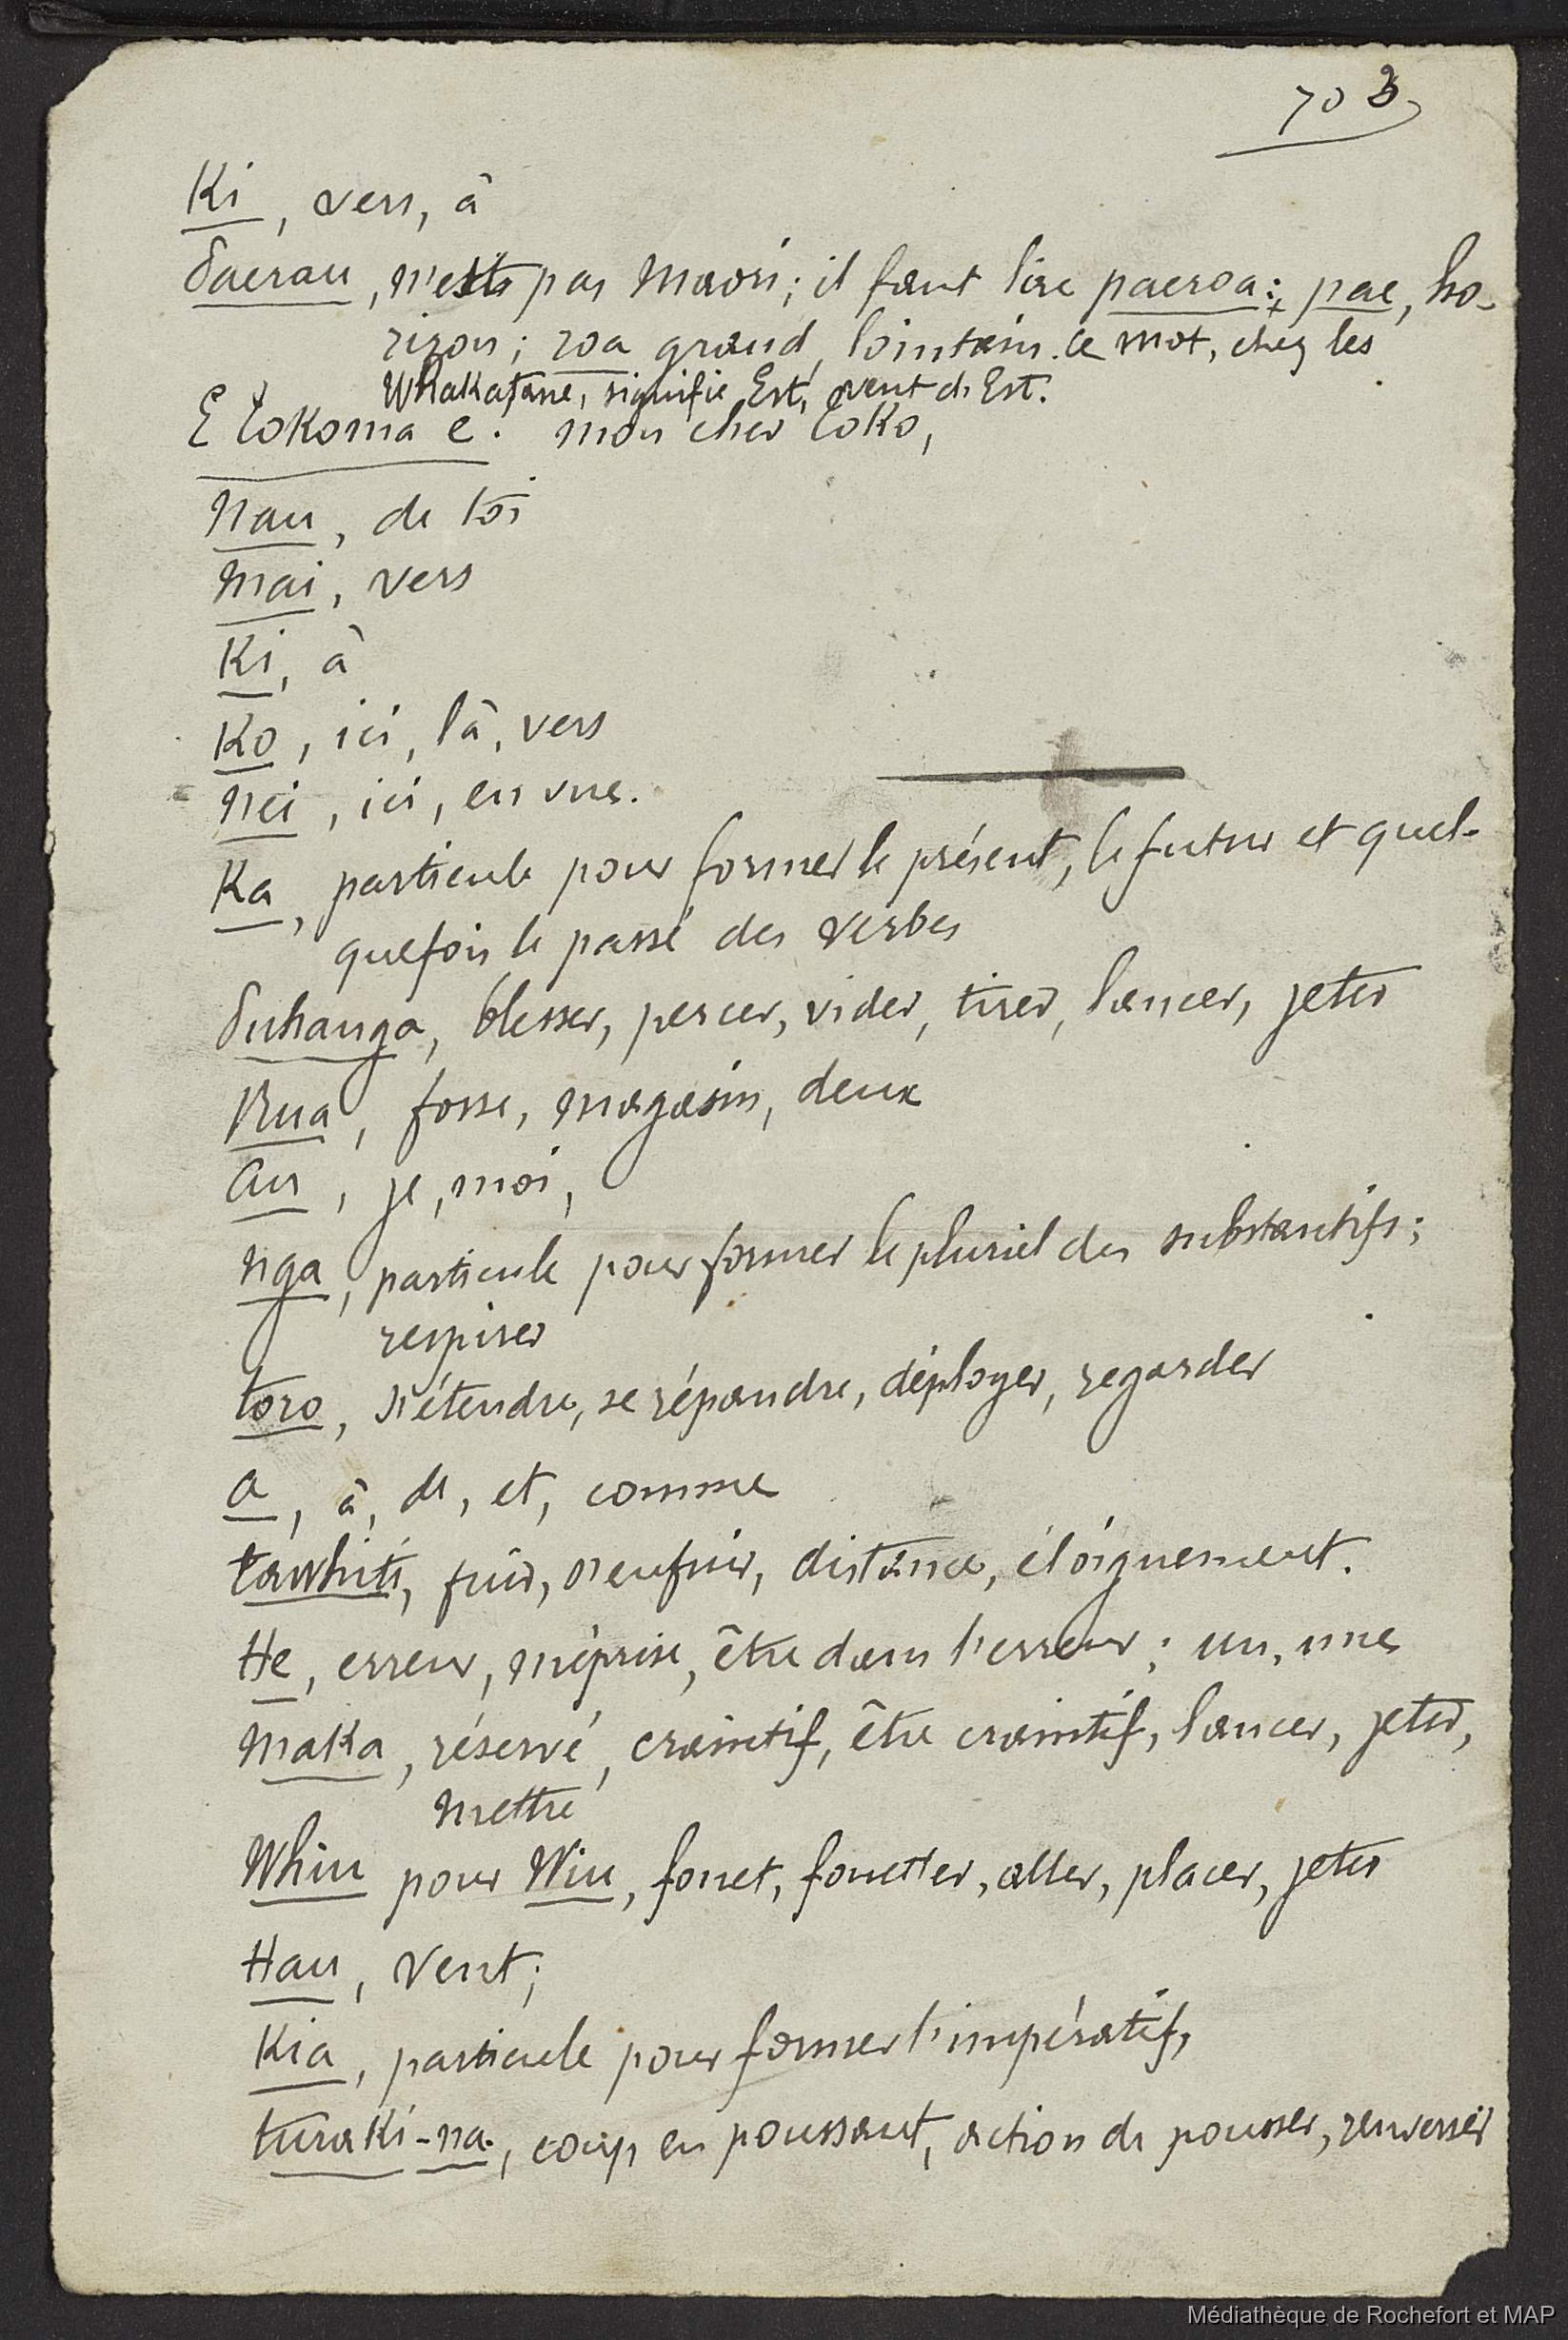 703
Ki, vers, à
Paerau, n'est pas Maori; il faut lire paeroa: pae, ho-
rizon; roa grand, lointain. Ce mot, chez les
Whakatane, signifie Est, vent d'Est.
E Tokoma e. mon cher Toko,
Nau, de toi
Mai, vers
Ki, à
Ko, ici, là, vers
Nei, ici, en vue.
Ka, particule pour former le présent, le futur et quel-
quefois le passé des verbes
Puhanga, blesser, percer, vider, tirer, lancer, jeter
Rua, fosse, magasin, deux
Au, je, moi,
Nga, particule pour former le pluriel des substantifs;
respirer
toro, s'étendre, se répandre, déployer, regarder
a, à, de, et, comme
tawhiti, fuir, s'enfuir, distance, éloignement.
He, erreur, méprise, être dans l'erreur; un, une
Maka, réservé, craintif, être craintif, lancer, jeter,
mettre
Whiu pour Wiu, fouet, fouetter, aller, placer, jeter
Hau, vent;
Kia, particule pour former l'impératif,
turaki-na, coup en poussant, action de pousser, renverser
Médiathèque de Rochefort et MAP